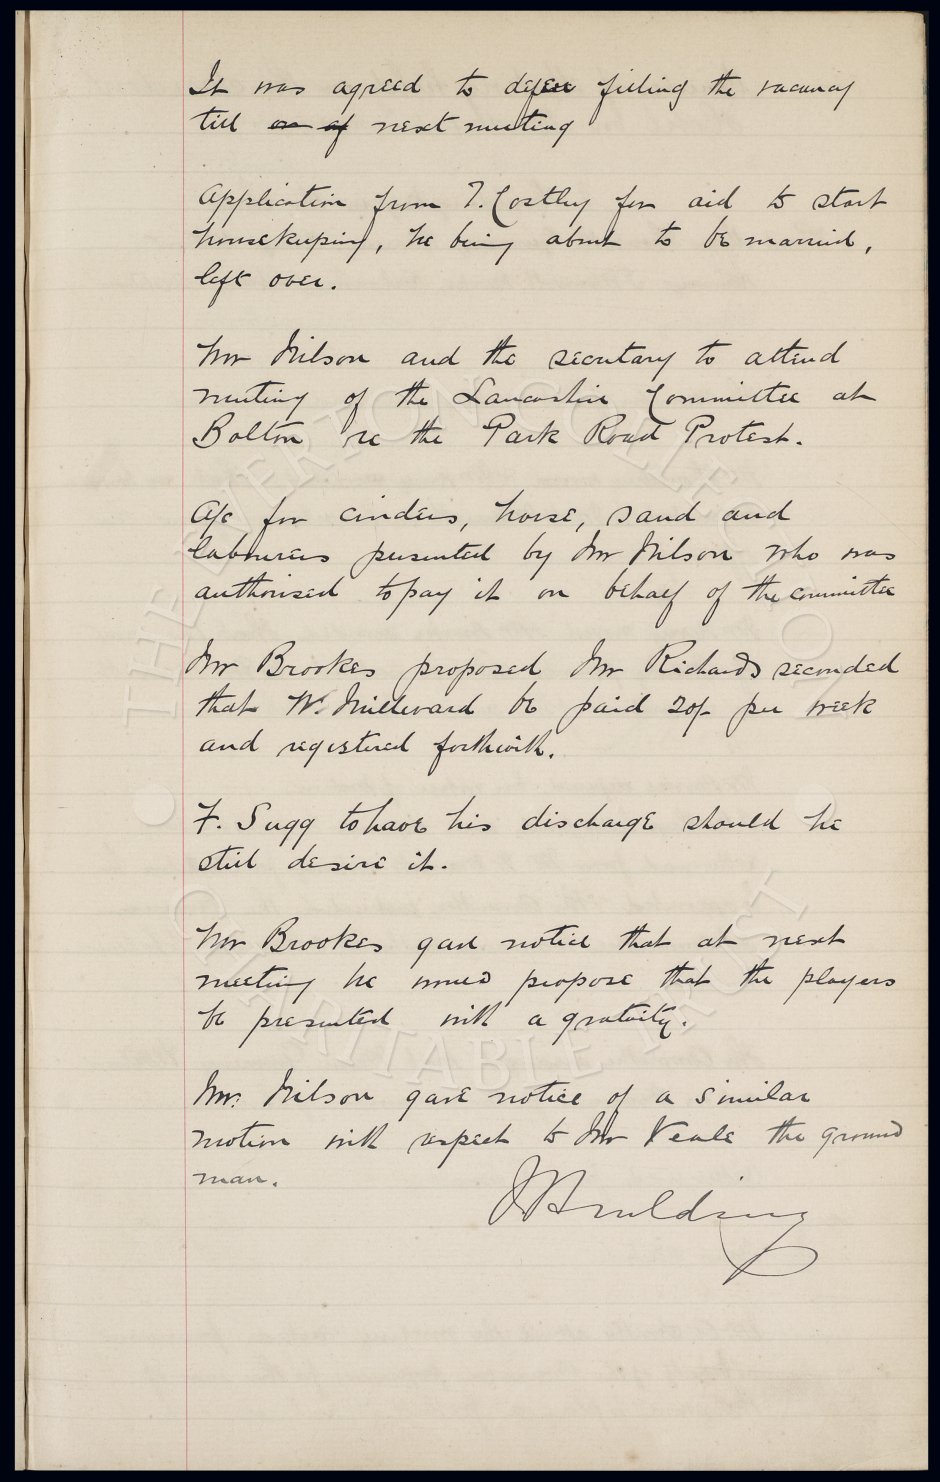 It was agreed to defer filling the vacancy
till on of next meeting
Application from T. Costley for aid to start
housekeeping, he being about to be married,
left over.
Mr Wilson and the secretary to attend
meeting of the Lancashire Committee at
Bolton re the Park Road Protest.
A/c for cinders, horse, sand and
labourers presented by Mr Wilson who was
authorised to pay it on behalf of the committee
Mr Brookes proposed Mr Richards seconded
that W. Millward be paid 20/- per week
and registered forthwith.
F. Sugg to have his discharge should he
still desire it.
Mr Brookes gave notice that at next
meeting he would propose that the players
be presented with a gratuity.
Mr. Wilson gave notice of a similar
motion with respect to Mr Veale the ground
man.
THE EVERTON COLLECTION
CHARITABLE TRUST